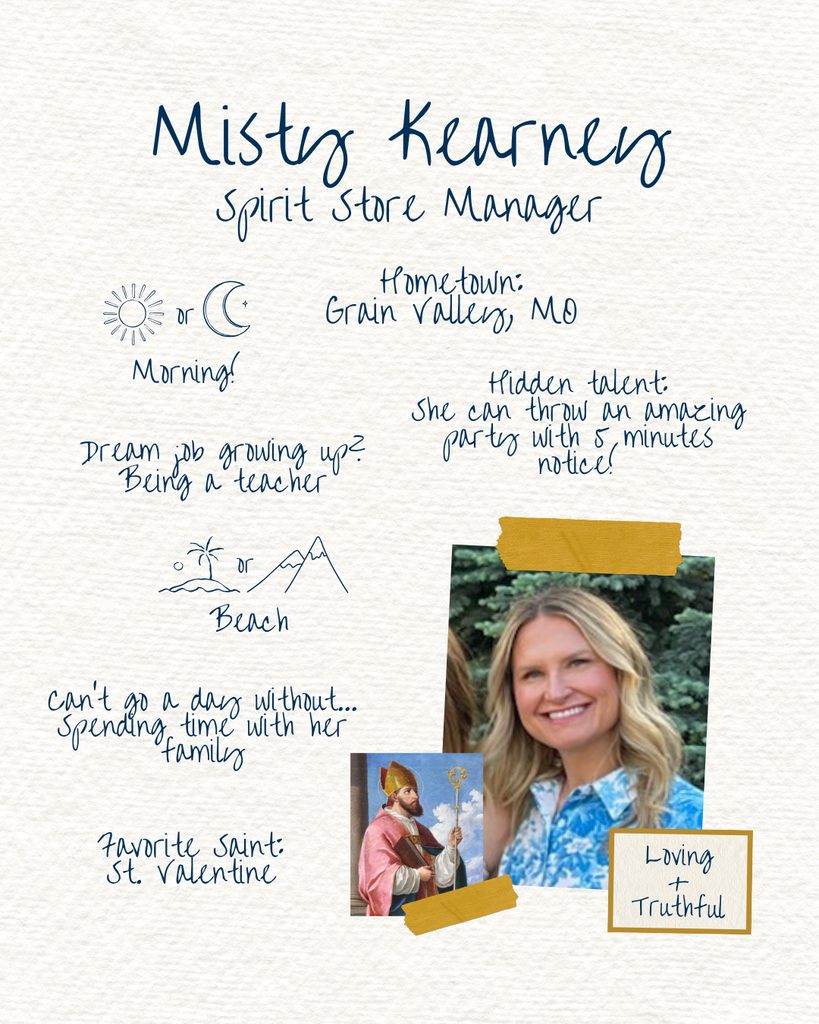 Misty Kearney
Spirit Store Manager
or
Morning!
Hometown:
Grain Valley, MO
Hidden talent:
She can throw an amazing
party with 5 minutes
notice!
Dream job growing up?
Being a teacher
or
Beach
Can't go a day without...
Spending time with her
family
Favorite Saint:
St. Valentine
Loving
+
Truthful